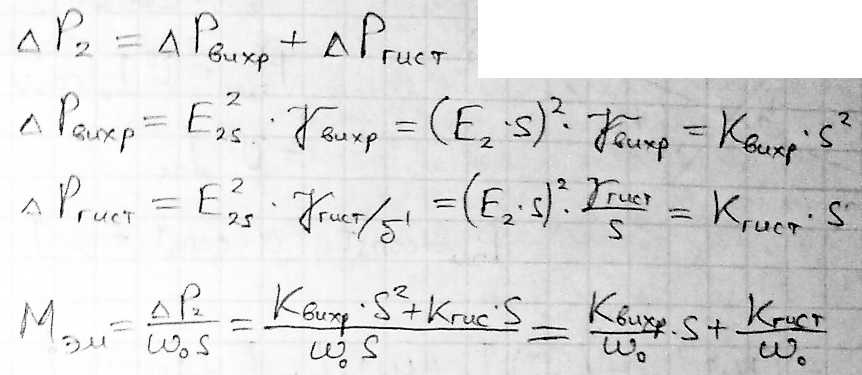 ΔP₂ = ΔPвихр + ΔPгист
ΔPвихр = E₂ₛ² · γвихр = (E₂ · s)² · γвихр = Kвихр · s²
ΔPгист = E₂ₛ² · γгист/s = (E₂ · s)² · γгист/s = Kгист · s
Mэм = ΔP₂/ω₀s = (Kвихр · s² + Kгис · s)/ω₀s = Kвихр/ω₀ · s + Kгист/ω₀